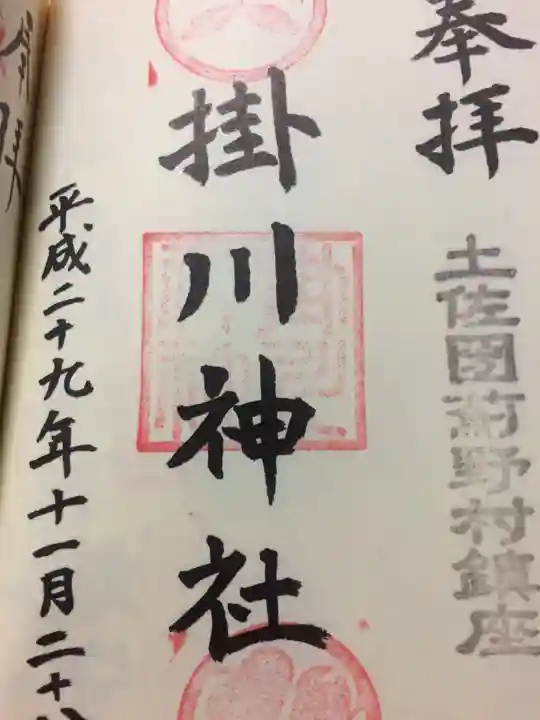 奉拝
土佐國薊野村鎮座
掛川神社
平成二十九年十一月二十